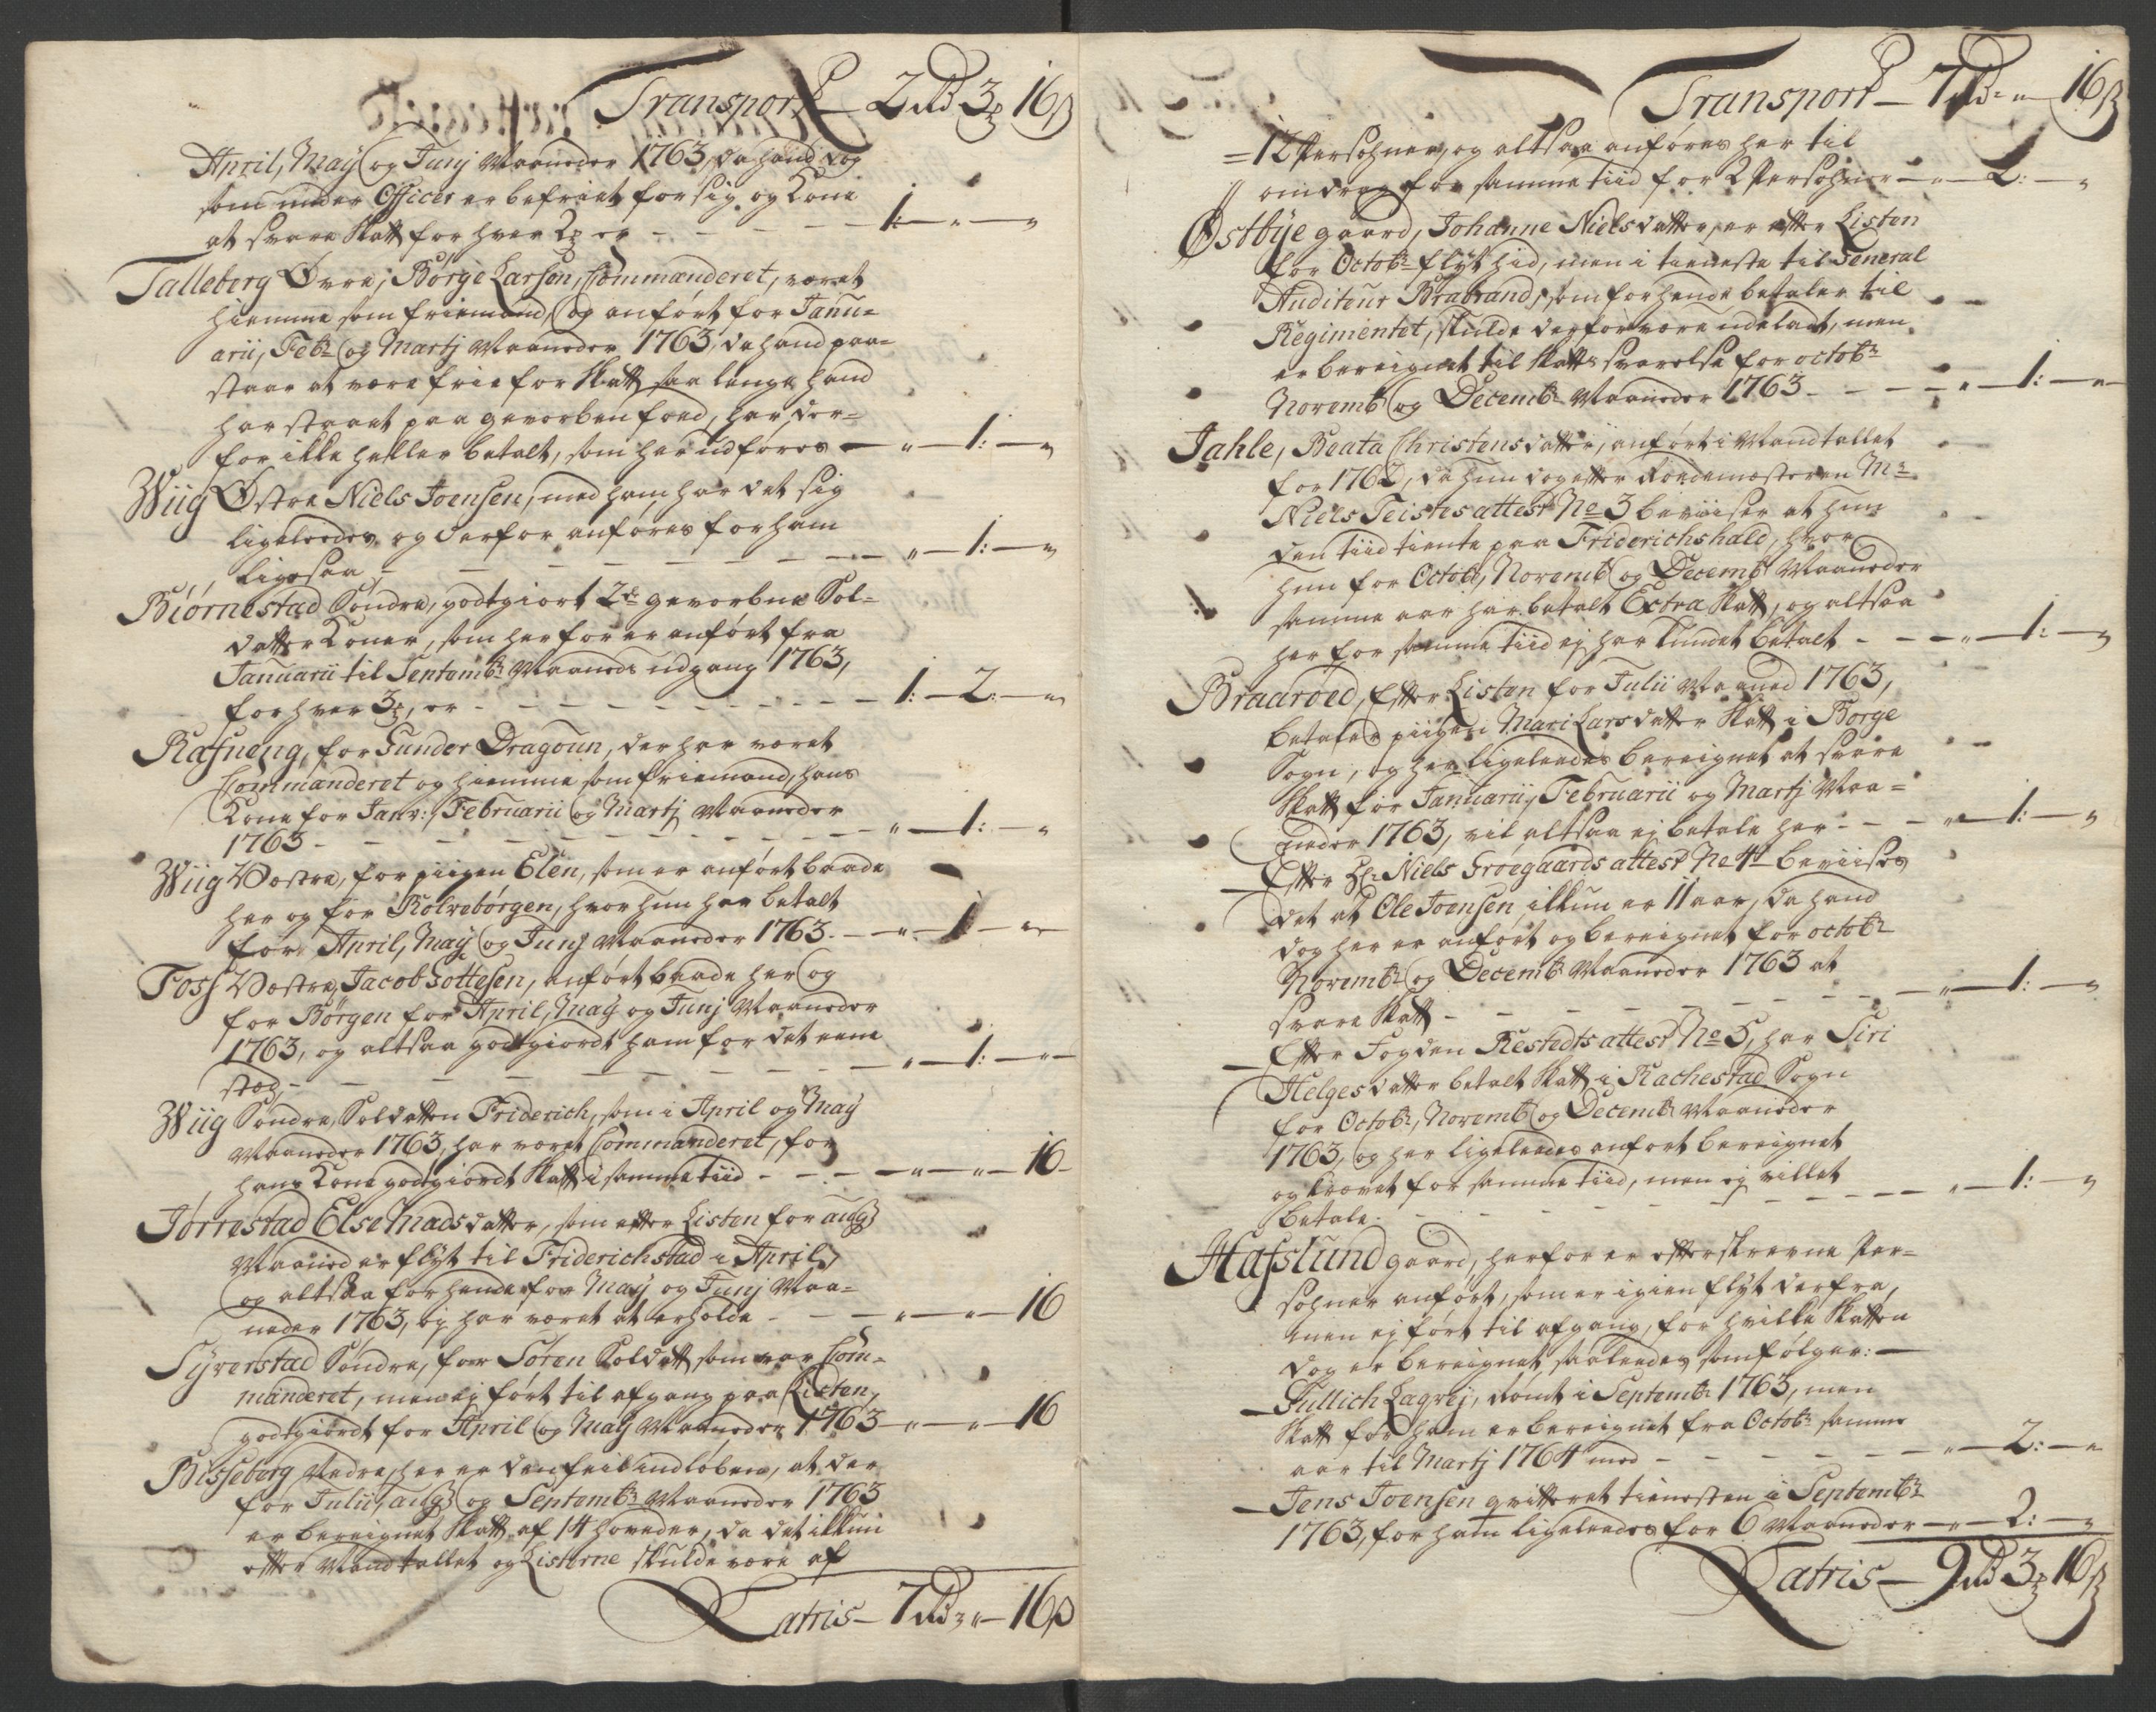 Transport 2 rd 3 ₰ 16 ß
April, Maÿ og Junj Maaneder 1763, da hand dog
som under Officer er befriet for sig og Kone
at svare Skatt for hver 2 ₰ er - - - - 1: " "
Talleberg Øvre, Börge Larsen, Commanderet, været
hiemme som friemand, og anført for Janu=
arii, Febr: og Martj Maaneder 1763, da hand paa=
staar at være frie for Skatt saa længe hand
har staaet paa gevorben foed, har der=
for ikke heller betalt, som her udføres " 1: "
Wiig Østre Niels Joensen, med ham har det sig
ligeleedes og derfor anføres for ham
ligesaa, - - - - - " 1: "
Biörnestad Söndre, godtgiort 2de gevorbne Sol=
datter Koner, som herfor er anført fra
Januarii til Septembr: Maaneds udgang 1763,
for hver 3 ₰, er - - - - - 1: 2: "
Rafneng, for Gunder Dragoun, der har været
Commanderet og hiemme som friemand, hans
Kone for Janv: Februarii og Martj Maaneder
1763 - - - - - " 1: "
Wiig Vestre, for piigen Elen, som er anført baade
her og for Rolvsbörgen, hvor hun har betalt
for April, Maÿ og Junj Maaneder 1763. " 1 "
Foss Vestre, Jacob Gottesen, anført baade her og
for Börgen for April, Maÿ og Junj Maaneder
1763, og altsaa godtgiordt ham for det eene
stæd, - - - - - " 1: "
Wiig Søndre, Soldatten Friderich, som i April og Maÿ
Maaneder 1763, har været Commanderet, for
hans Kone godtgiordt Skatt i samme tiid - - - " " 16
Jörrestad Else Madsdatter, som efter Listen for augs
Maaned er flÿt til Friderichstad i April,
og altsaa for hende for Maÿ og Junj Maa=
neder 1763, ej har været at erholde - - - " " 16
Sÿverstad Söndre, for Sören Soldatt som var Com=
manderet, men ej ført til afgang paa Listen,
godtgiordt for April og Maÿ Maaneder 1763 " " 16
Bisseberg Nedre, her er den feil indløben, at der
for Julii, augs og Septembr: Maaneder 1763
er bereignet Skatt af 14 hoveder, da det ikkun
efter Mandtallet og Listerne skulde være af
Latris 7 rd " 16 ß
Transport 7 rd " 16 ß
=12 Persohner, og altsaa anføres her til
omdrag for samme tiid for 2 Persohner " 2: "
Østbÿe gaard, Johanne Nielsdatter, er efter Listen
for Octobr: flÿt hid, men i tieneste til General
Auditeur Brabrand, som for hende betaler til
Regimentet, skulde derfor være udeladt, men
er bereignet til Skatts svarelse for octobr:
Novemb: og Decembr: Maaneder 1763 - - - " 1: "
Jahle, Beata Christensdatter, anført i Mandtallet
for 1762, da hun dog efter Roedemesteren Mr:
Niels Teistes attest No 3 beviiser at hun
den tiid tiente paa Friderichshald, hvor
hun for Octobr, Novembr og Decembr Maaneder
samme aar har betalt Extra Skatt, og altsaa
her for samme tiid ej har kundet betalt - - - " 1: "
Braaröed, Efter Listen for Julii Maaned 1763,
betaler piigen Mari Larsdatter Skatt i Borge
Sogn, og her ligeleedes bereignet at svare
Skatt for Januarii, Februarii og Martj Maa=
neder 1763, vil altsaa ej betale her - - - " 1: "
Efter Hr: Niels Groegaards attest No 4 beviises
det at Ole Joensen ikkun er 11 aar, da hand
dog her er anført og bereignet for octobr:
Novembr: og Decembr: Maaneder 1763 at
svare Skatt - - - - - " 1: "
Efter Fogden Restedts attest No 5, har Siri
Helgesdatter betalt Skatt i Rachestad Sogn
for Octobr:, Novembr og Decembr: Maaneder
1763, og her ligeleedes anført bereignet
og krævet for samme tiid, men ej villet
betale. - - - - - " 1: "
Hafslund gaard, herfor er efterskrevne Per=
sohner anført, som er igien flÿt derfra,
men ej ført til afgang, for hvilke Skatten
dog er bereignet saaleedes som følger:
Tullich Laqvej, römt i Septembr: 1763, men
Skatt for ham er bereignet fra Octobr: samme
aar til Martj 1764 med - - - - - " 2: "
Jens Joensen qvitteret tienesten i Septembr:
1763, for ham ligeleedes for 6 Maaneder " 2: "
Latris 9 rd 3 ₰ 16 ß